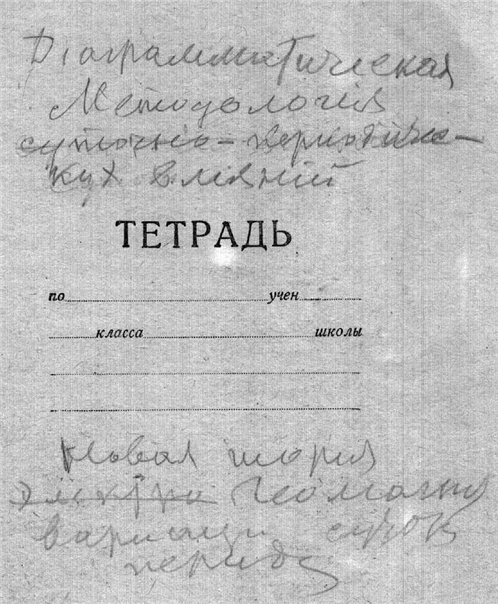 Диаграмматическая
Методология
суточно-периодичес-
ких влияний
ТЕТРАДЬ
по учен
класса школы
Новая теория
электро геомагн
вариаци суток
период